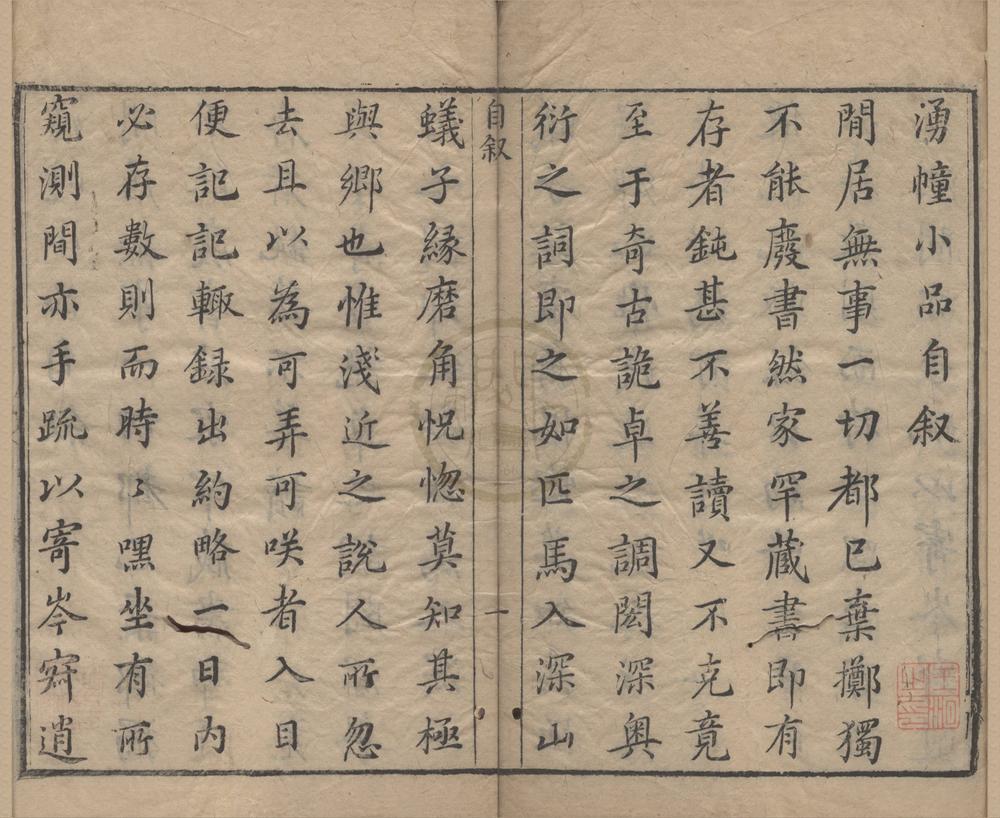 湧幢小品自叙
閒居無事一切都已棄擲獨
不能廢書然家罕蔵書即有
存者鈍甚不善讀又不克竟
至于奇古詭卓之調閎深奥
衍之詞即之如匹馬入深山
自叙
一
蟻子緣磨角怳惚莫知其極
與鄉也惟淺近之說人所忽
去且以為可弄可咲者入目
便記記輙録出約略一日内
必存數則而時〻嘿坐有所
窺測間亦手疏以寄岑寂逍